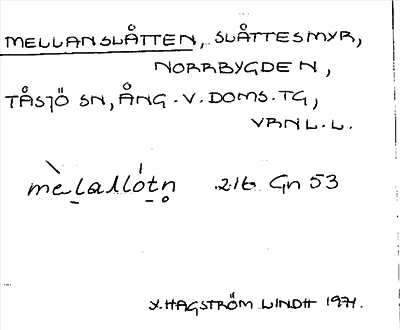 MELLANSLÅTTEN, SLÅTTESMYR,
NORRBYGDEN,
TÅSJÖ SN, ÅNG. V. DOMS. TG,
VRNL.L.
mèlallótn 216 Gn 53
HAGSTRÖM LINDH 1971.